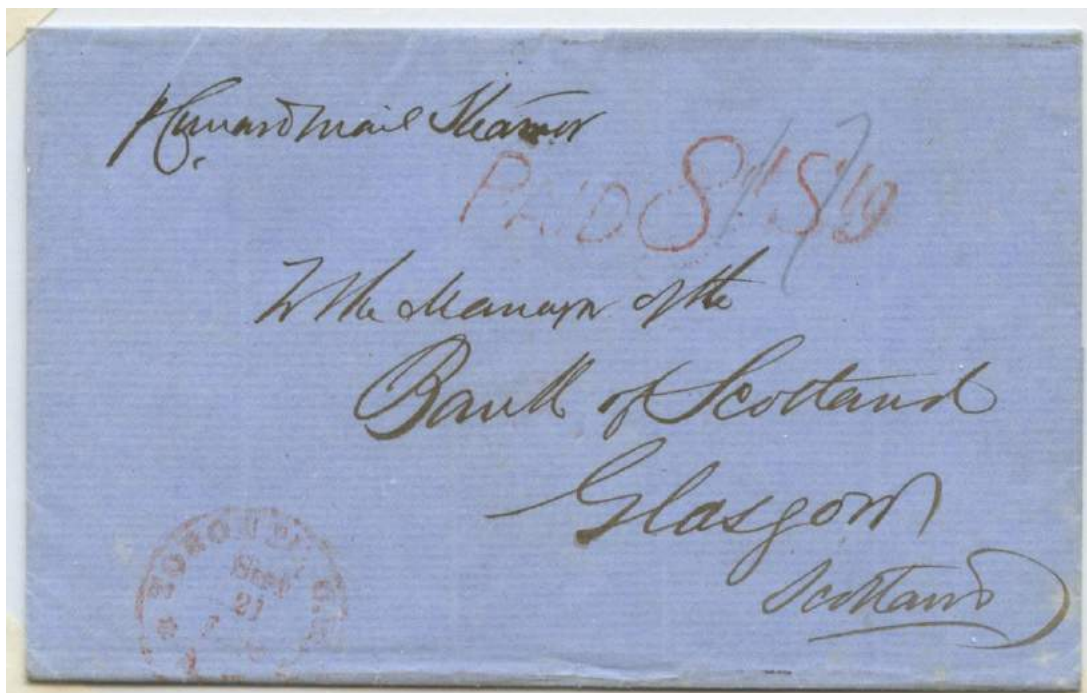 p Cunard mail Steamer
PAID 8
To the Manager of the
Bank of Scotland
Glasgow
Scotland
21